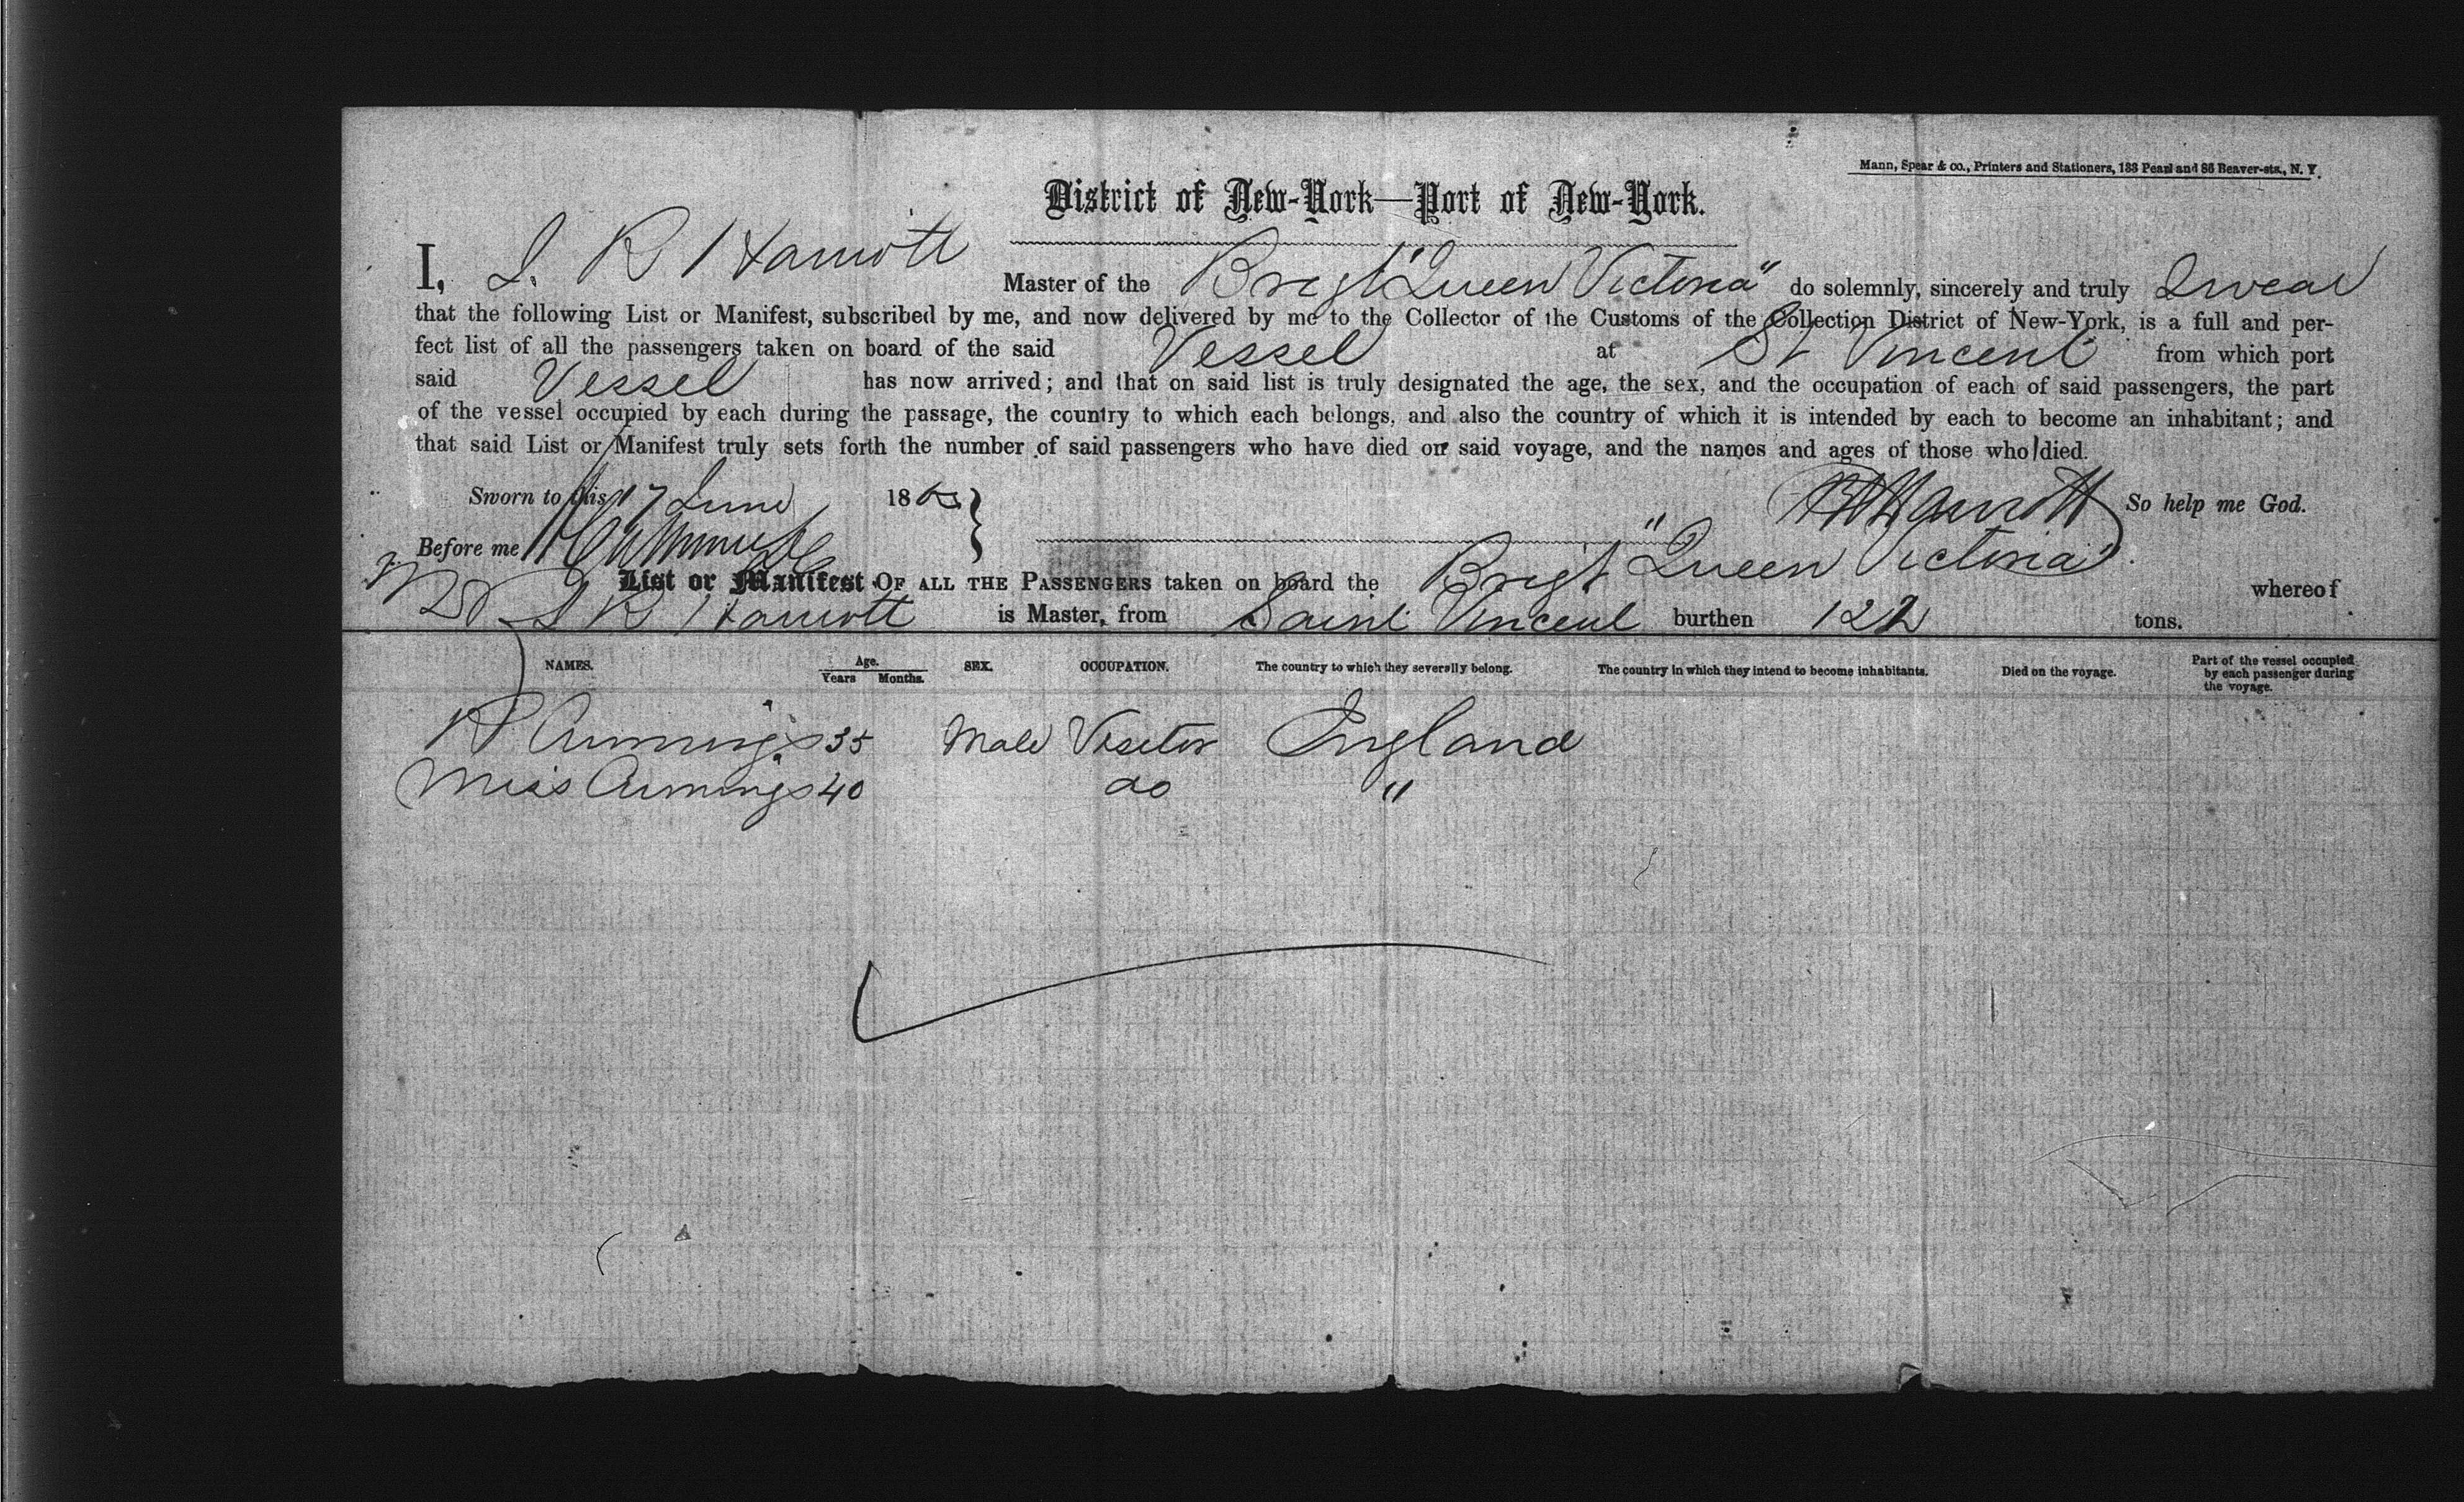 Mann, Spear & co., Printers and Stationers, 133 Pearl and 86 Beaver-sts., N. Y.
District of New-York—Port of New-York.
I, J. R Harriott Master of the Brigt "Queen Victoria" do solemnly, sincerely and truly Swear
that the following List or Manifest, subscribed by me, and now delivered by me to the Collector of the Customs of the Collection District of New-York, is a full and per-
fect list of all the passengers taken on board of the said Vessel at St Vincent from which port
said Vessel has now arrived; and that on said list is truly designated the age, the sex, and the occupation of each of said passengers, the part
of the vessel occupied by each during the passage, the country to which each belongs, and also the country of which it is intended by each to become an inhabitant; and
that said List or Manifest truly sets forth the number of said passengers who have died on said voyage, and the names and ages of those who died.
Sworn to this 17 June 1865 Harriott So help me God.
Before me
List or Manifest OF ALL THE PASSENGERS taken on board the Brigt "Queen Victoria" whereof
J R Harriott is Master, from Saint Vincent burthen 122 tons.
NAMES. Age. Years Months. SEX. OCCUPATION. The country to which they severally belong. The country in which they intend to become inhabitants. Died on the voyage. Part of the vessel occupied by each passenger during the voyage.
R Cumings 35 Male Visitor England
Miss Cumings 40 do "